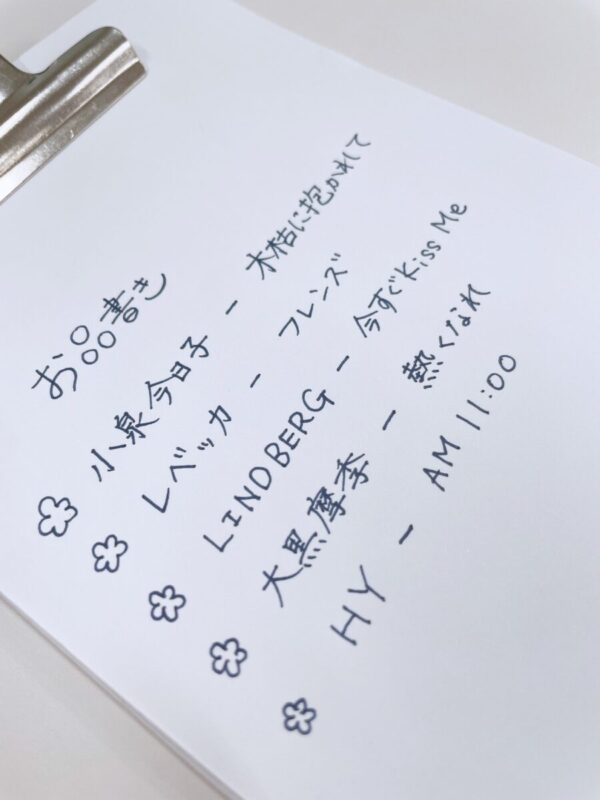 お品書き
小泉今日子 - 木枯に抱かれて
レベッカ - フレンズ
LINDBERG - 今すぐKiss Me
大黒摩季 - 熱くなれ
HY - AM 11:00